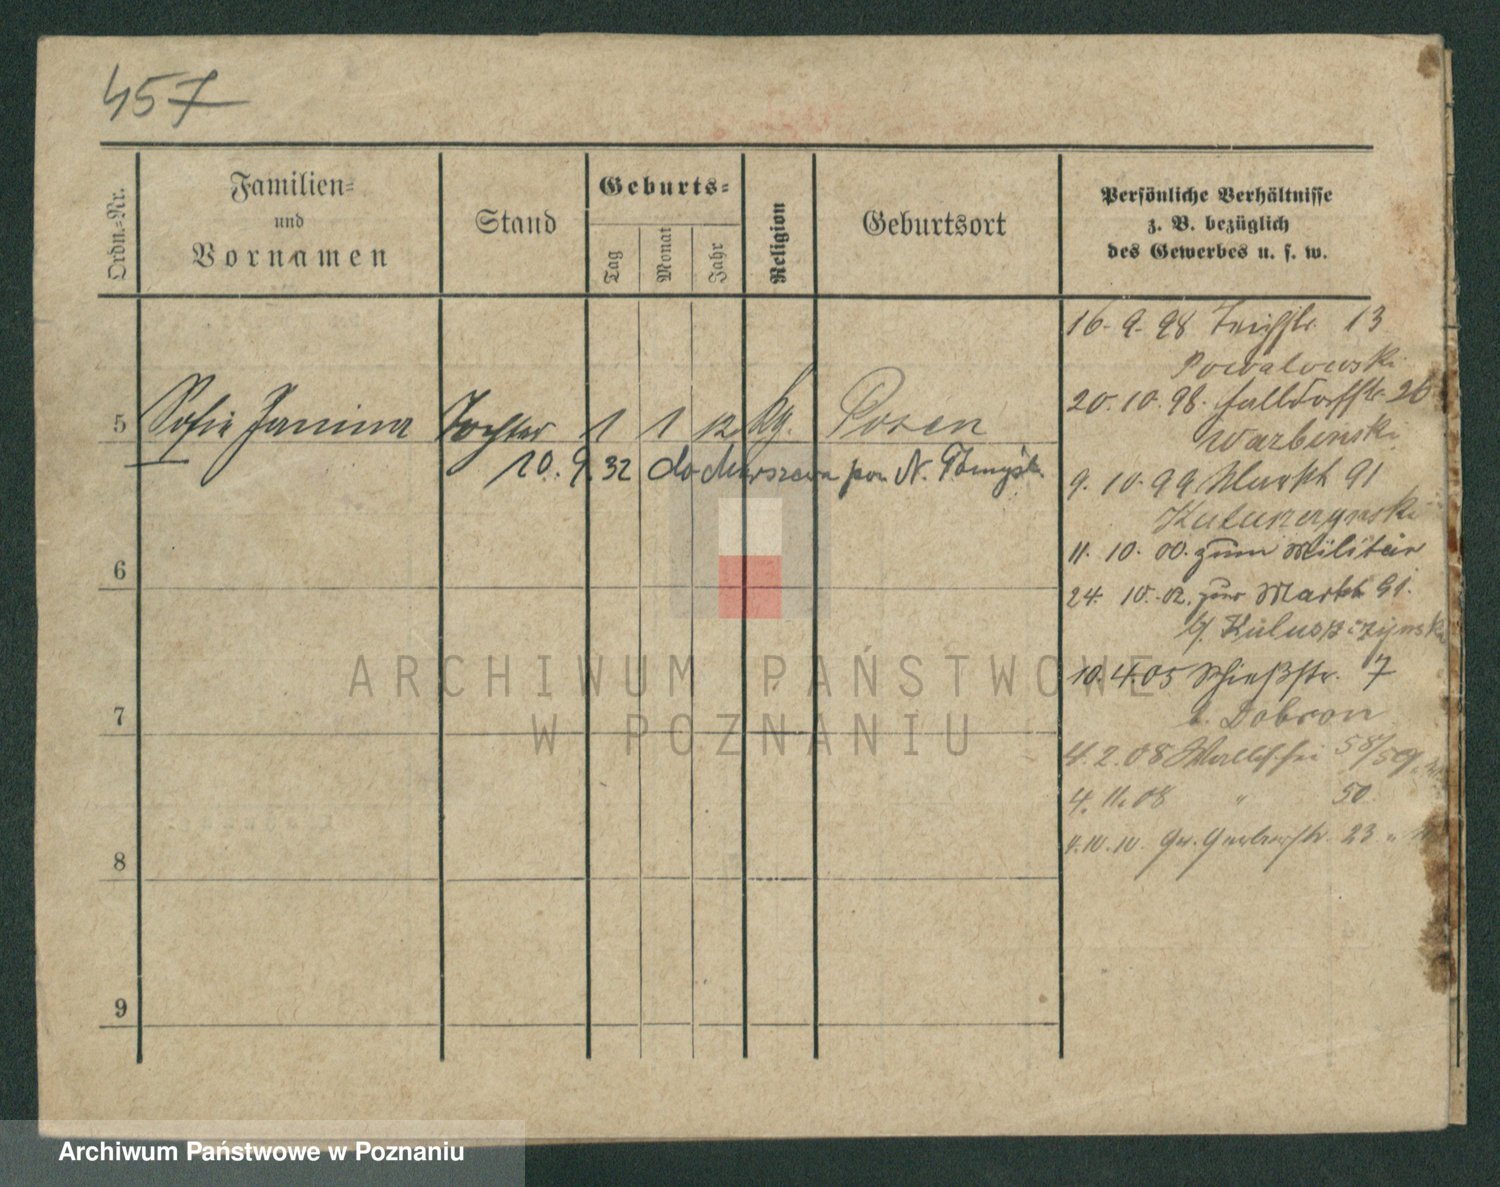 457
Ordn.-Nr.
Familien-
und
Vornamen
Stand
Geburts-
Tag
Monat
Jahr
Religion
Geburtsort
Persönliche Verhältnisse
z. B. bezüglich
des Gewerbes u. s. w.
5 Sofie Janina Tochter 1 1 12 kg. Posen
10. 9. 32 do pow N. Tomyśl
6
7
8
9
16. 9. 98 13
Powalowski
20. 10. 98. 26
Warbinski
9. 10. 99 91
11. 10. 00. zum Militär
24. 10. 02. zur Markt 91.
10. 4. 05 Schießstr. 7
b. Dobron
4. 2. 08 Wallischei 58/59
4. 11. 08 " 50
4. 10. 10. Gr. Gerberstr. 23
ARCHIWUM PAŃSTWOWE
W POZNANIU
Archiwum Państwowe w Poznaniu